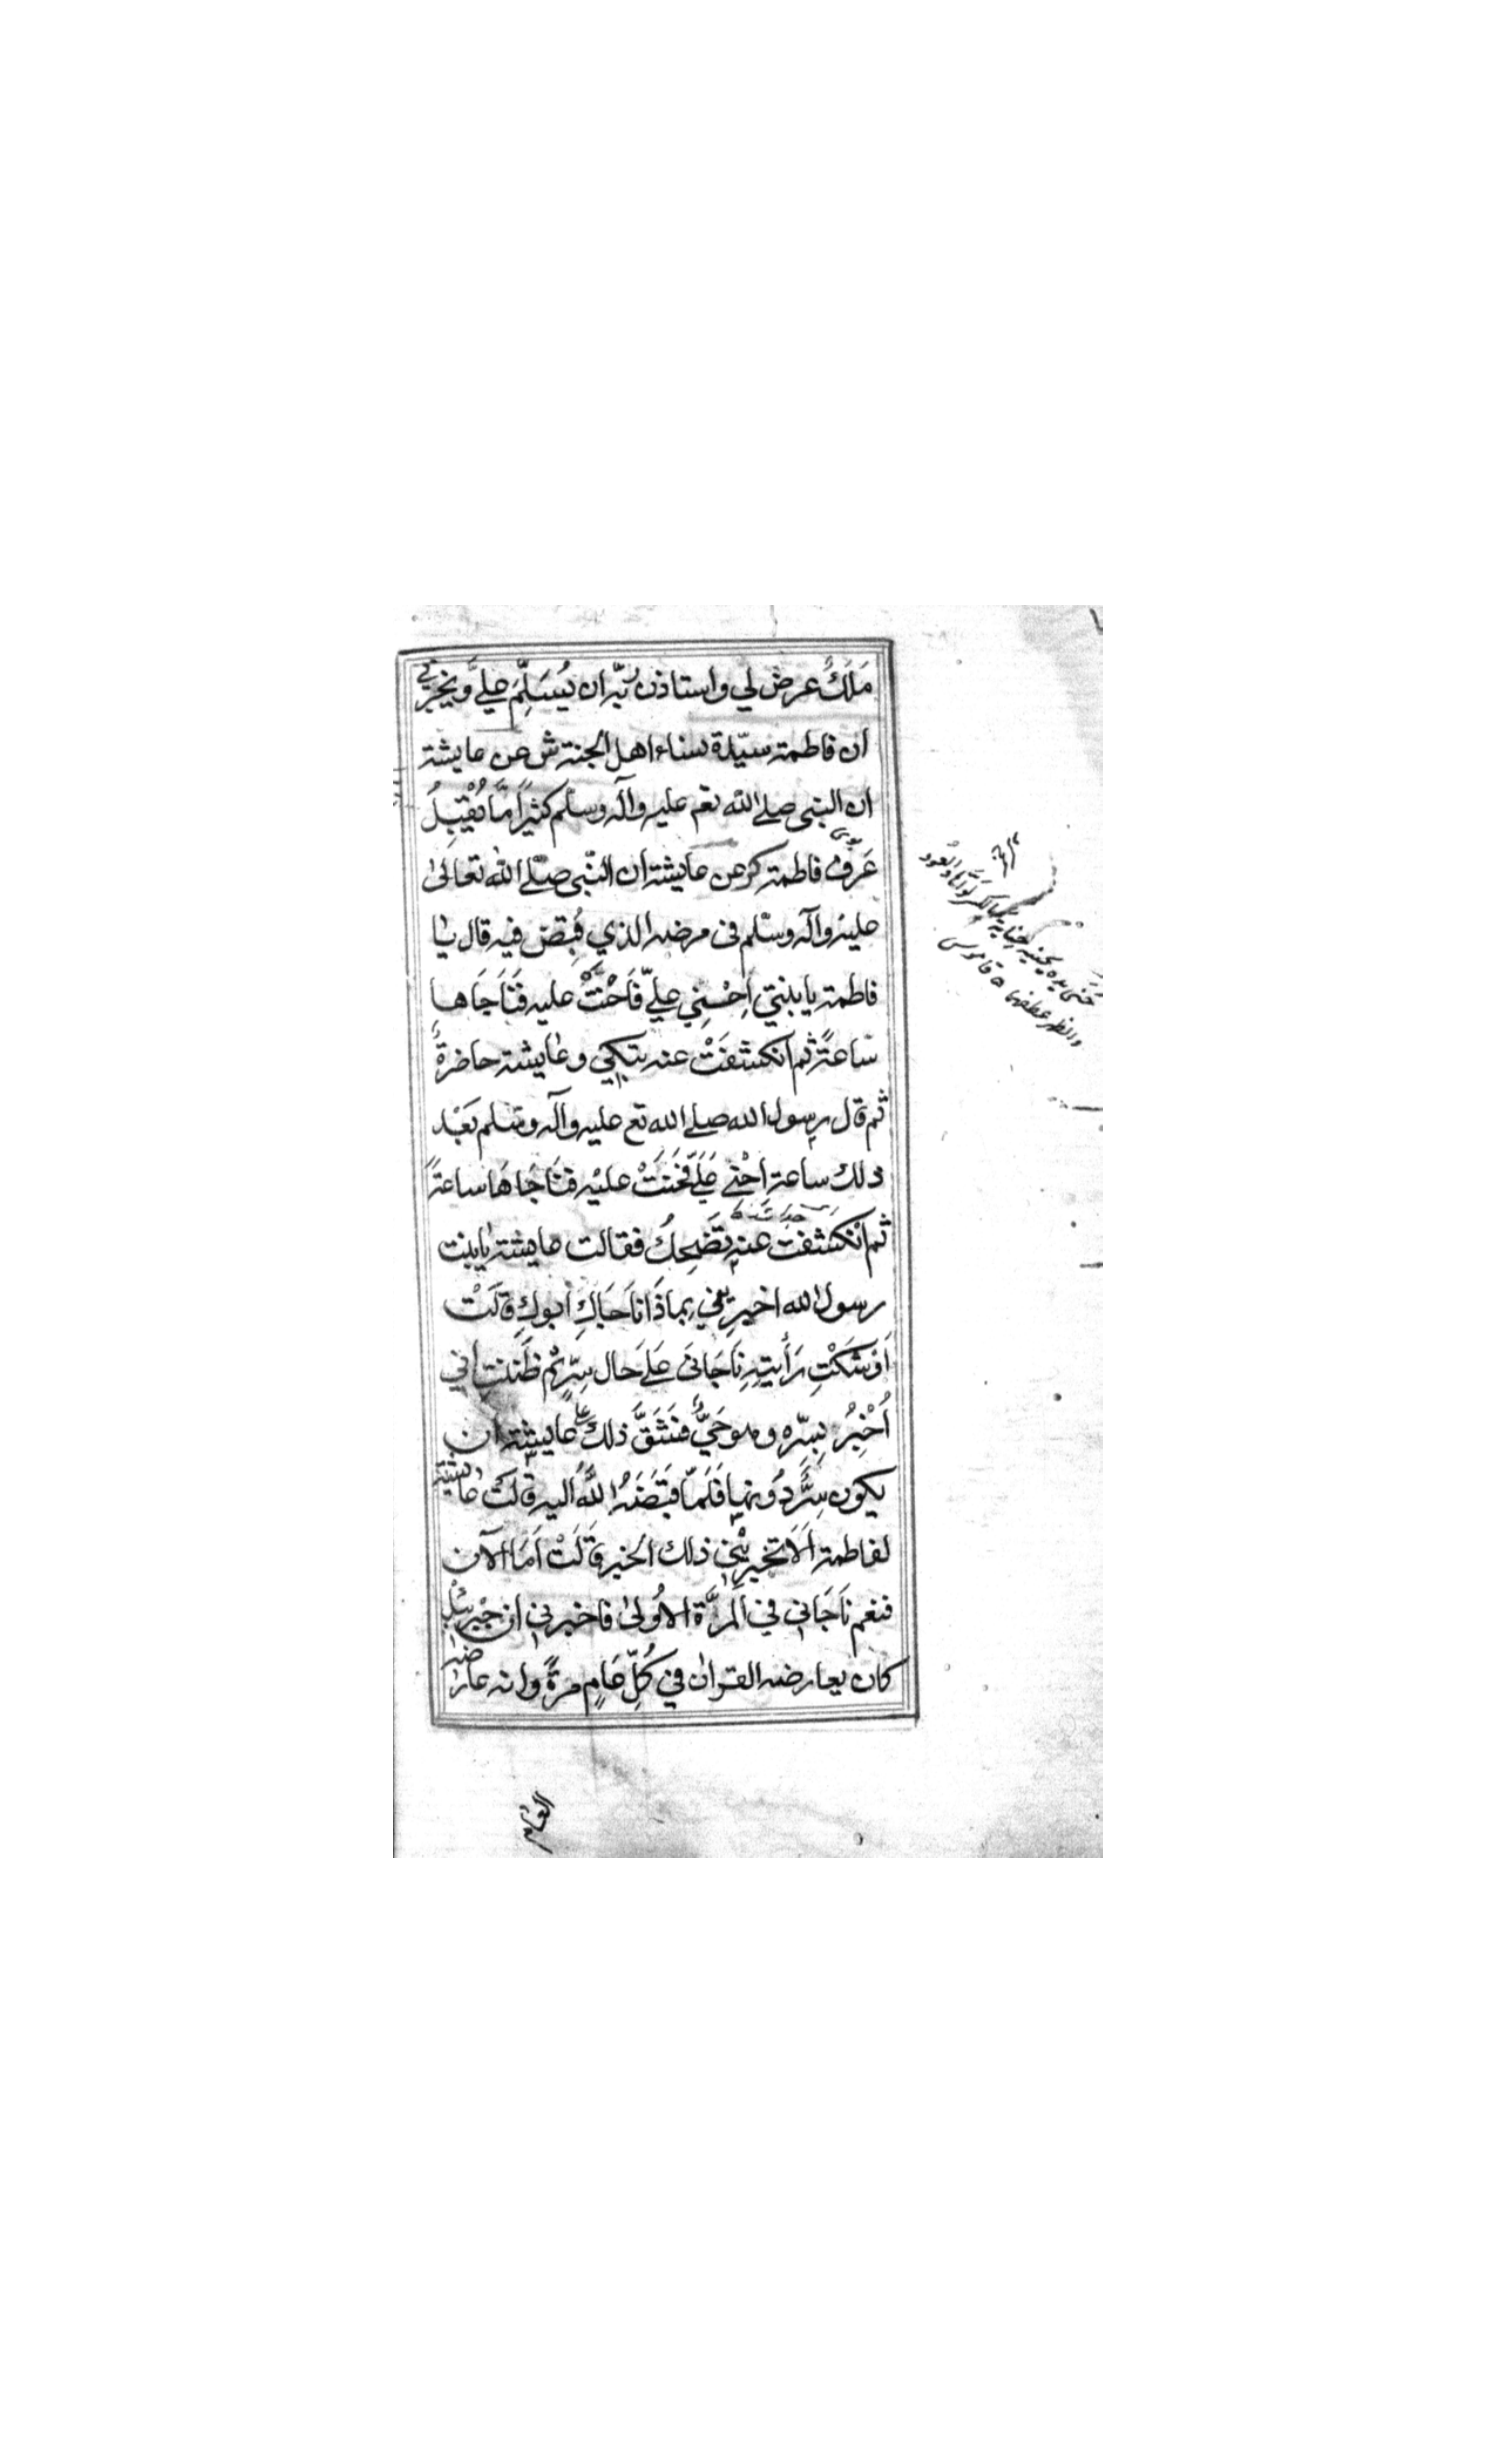 مَلَكٌ عرض لي واستاذن ربّه ان يُسَلِّمَ عليَّ ويخبرني
ان فاطمة سيّدة نساء اهل الجنة ش عن عايشة
ان النبي صلے الله تعم عليه وآله وسلم كثيراً مّا يُقَبِّلُ
عَرف فاطمة كر عن عايشة ان النّبي صلّے الله تعالیٰ
عليه وآله وسلّم فی مرضه الذي قُبِضَ فيه قال يا
فاطمة يا بنتي اَحْنِي عليّ فَاَحْنَتْ عليه فَنَاجَاها
ساعةً ثم انكشفَتْ عنه تبكي وعايشة حاضرةٌ
ثم قال رسول الله صلے الله تع عليه وآله وسلم بَعْد
ذلك ساعة اَحْنِي عَلَيّ فَحَنَتْ عليْه فنَاجَاهَا ساعةً
ثم انكشفتْ عنه تَضحِكُ فقالت عايشة يا بنت
رسول الله اخبرِيْني بماذَا نَاجَاكِ ابوكِ قالَتْ
اَوْشَكْتِ رَأيتِهِ نَاجَانی عَلےَ حال سِرٍّ ثم ظَنَنتِ اني
اُخْبِرُ بسرّه وهو حَيٌّ فشَقَّ ذلك علی عايشة ان
يكون سِرٌّ دُونها فَلَمّا قَبَضَهُ اللّٰهُ اليه قالَت عايشة
لفاطمة اَلَا تخبرِيْني ذلك الخبر قالَتْ اَمَا الآن
فنعم نَاجَاني في المرَّة الاُولیٰ فاخبرني ان جبرئيل
كان يعارضه القرآن في كُلّ عَامٍ مرةً وانه عارضه
حنی يده يحنيه حناية لواها والعود
والظهر عطفها ه قاموس
العام